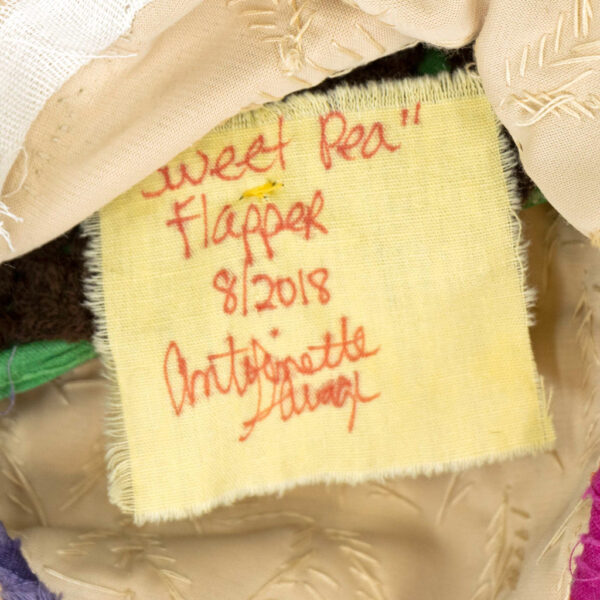 Sweet Pea"
Flapper
8/2018
Antoinette